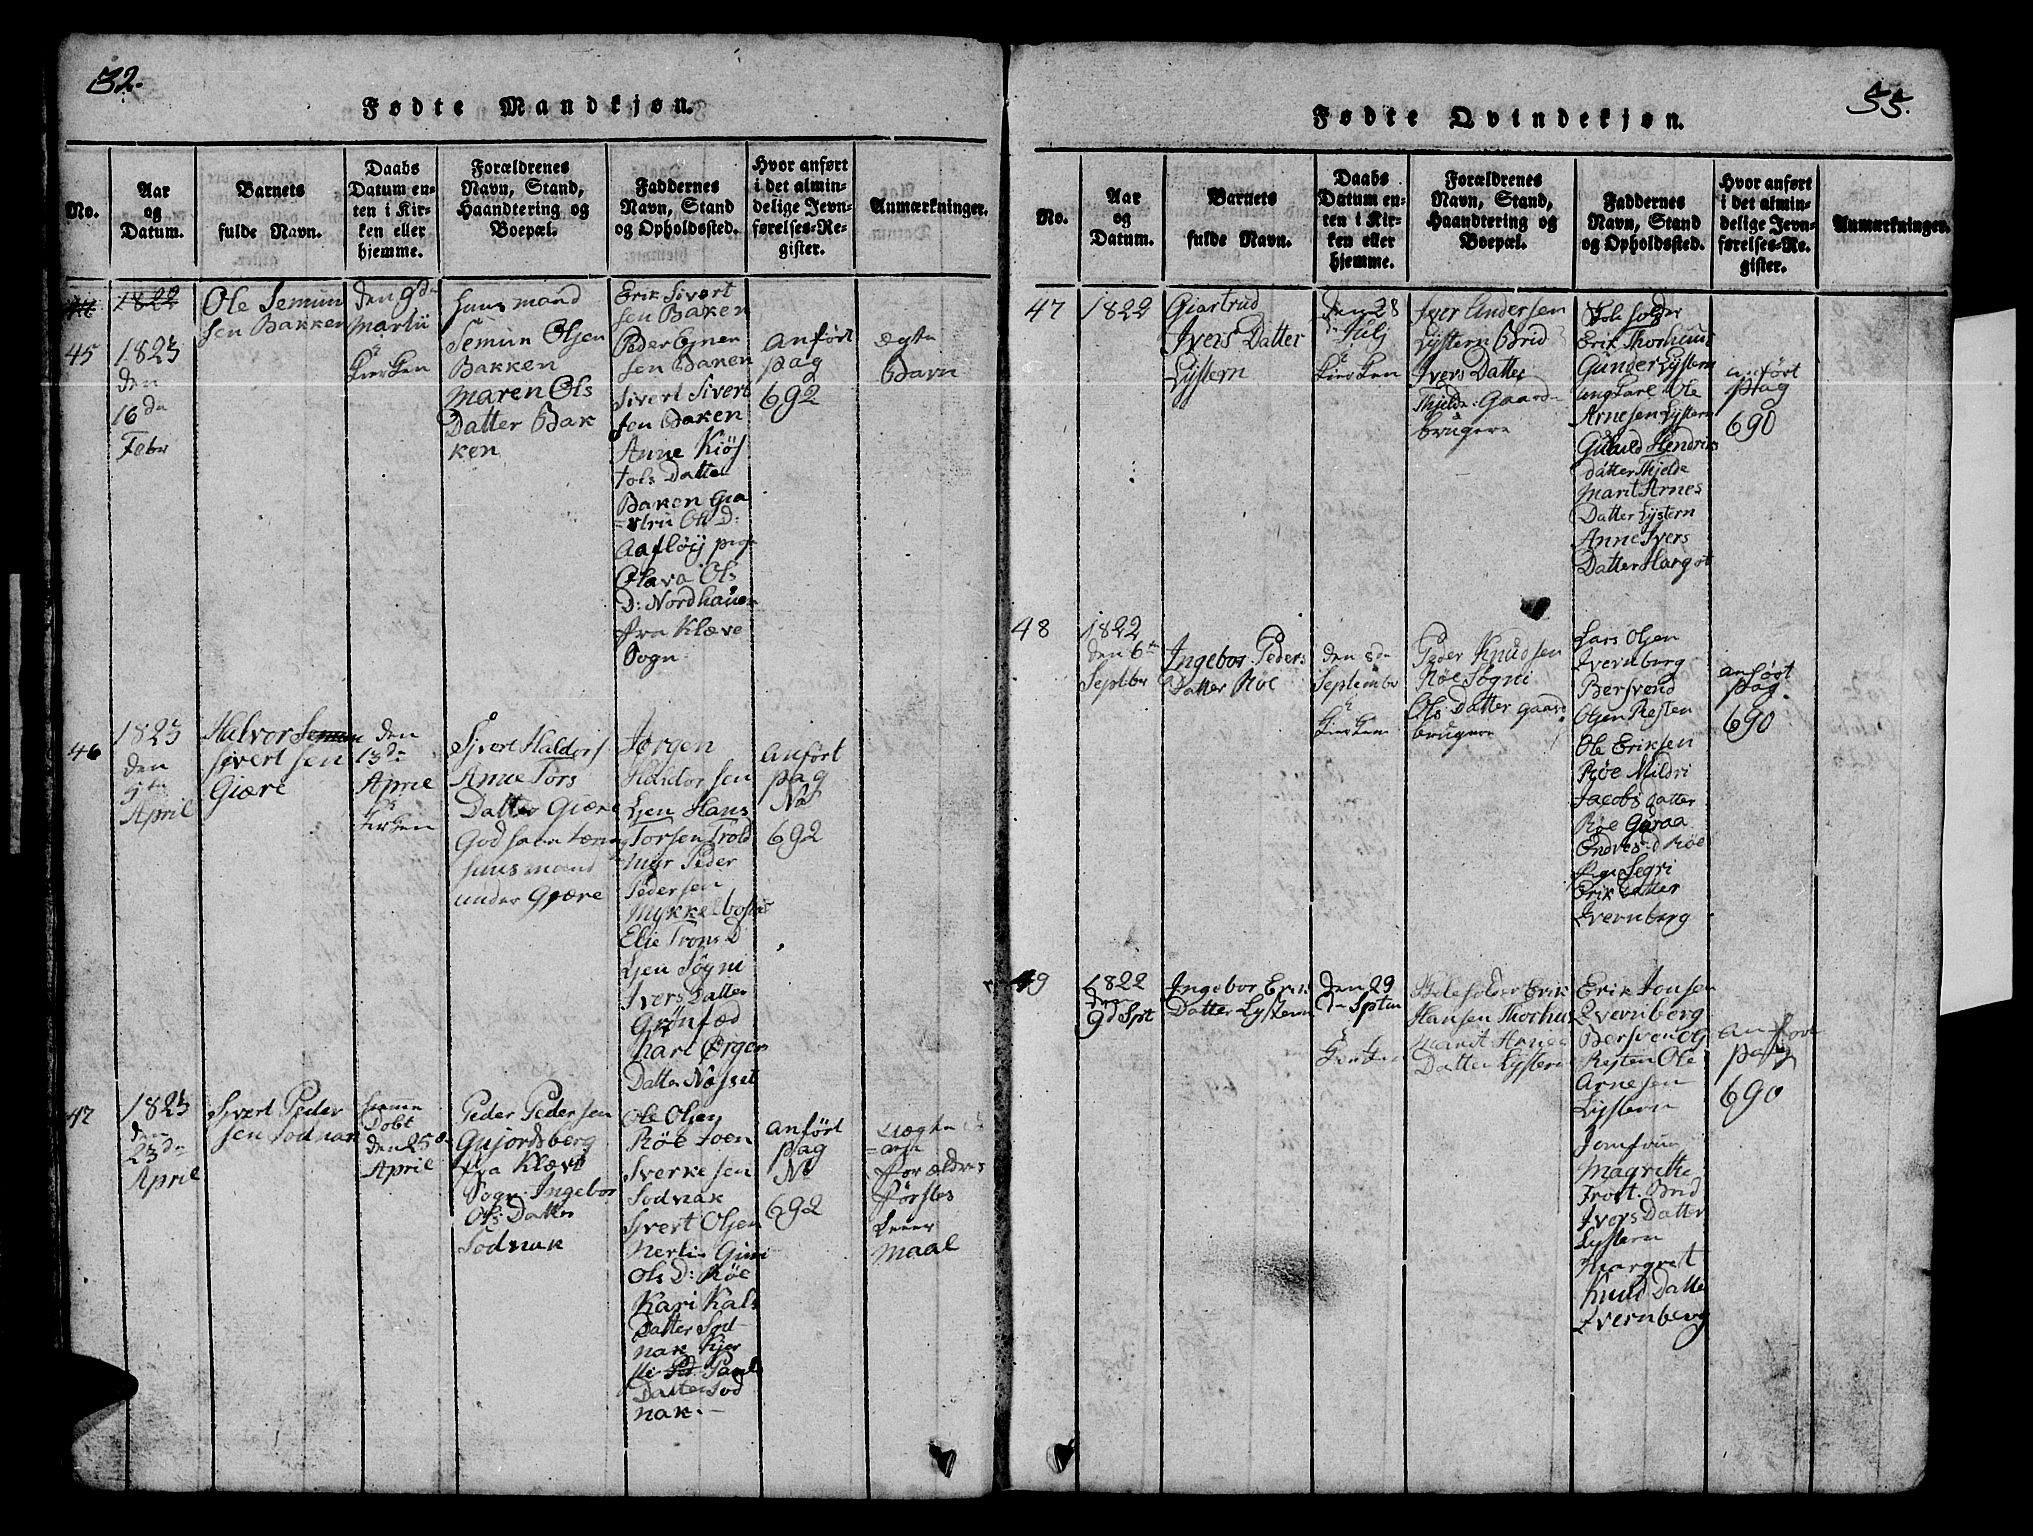 32.
Fødte Mandkjøn.
No.
Aar
og
Datum.
Barnets
fulde Navn.
Daabs
Datum en-
ten i Kir-
ken eller
hjemme.
Forældrenes
Navn, Stand,
Haandtering og
Boepæl.
Faddernes
Navn, Stand
og Opholdssted.
Hvor anført
i det almin-
delige Jevn-
førelses-Re-
gister.
Anmærkninger.
1822
45
1823
den
16 da
Febr
Ole Semun
sen Bakken
den 9 da
Martii
Kierken
Huusmand
Semun Olsen
Bakken
Maren Ols
Datter Bak
ken
Erik Sivert
sen Baken
Peder Ejnen
sen Baken
Sivert Sivert
sen Baken
Anne Kiøs
tols Datter
Baken Gia
Ols D:
Aafløy pige
Olava Ols
D: Nordhauen
fra Klæve
Sogn
anført
pag
692
ægte
Barn
46
1823
den
5 da
April
Halvor
Sivert sen
Giære
den
13 da
April
Kirken
Sivert Haldors
Anne Tors
Datter Giære
Huusmænd
under Gjære
Jørgen
Haldor sen
Ljen Hans
Torsen Trold
myr Peder
Pedersen
Mykkelbost
Elie Trons D
Ljen Søgni
Ivers Datter
Grønfæd
Kari Ørgens
Datter Nøsset
anført
pag
No
692
47
1823
den
23 da
April
Sivert Peder
sen Sodnak
hiemme
Døbt
den 25 d
April
Peder Pedersen
Gujordsberg
fra Klæve
Sogn. Ingebor
Ols Datter
Sodnak
Ole Olsen
Røe Joen
Sverkesen
Sodnak
Sivert Olsen
Nerli Guri
Ols D: Røe
Kari Kals
Datter Sod
nak Kjer
sti Paul
Datter Sod
nak.
anført
pag
No
692
Uægte
Forældres
Første
Leuer
maal
55.
Fødte Qvindekjøn.
No.
Aar
og
Datum.
Barnets
fulde Navn.
Daabs
Datum en-
ten i Kir-
ken eller
hjemme.
Forældrenes
Navn, Stand,
Haandtering og
Boepæl.
Faddernes
Navn, Stand
og Opholdssted.
Hvor anført
i det almin-
delige Jevn-
førelses-Re-
gister.
Anmærkninger.
47
1822
Giartrud
Ivers Datter
Lystern
den 28
Julj
Kierken
Iver Andersen
Lystern Brid
Ivers Datter
Thjelde: Gaard
brugere
Erik Thorhuus
Gunder Lystern
ungkarl Ole
Arnesen Lystern
Hendriks
datter Thjelde
Marit Arnes
Datter Lystern
Anne Ivers
Datter Hargot
anført
pag
690
48
1822
den 6 te
Septbr
Ingebor Peders
Datter Røe
den 8 da
Septembr
Kierken
Peder Knudsen
Røe Søgni
Ols Datter gaard
brugere
Lars Olsen
Ivernberg
Bersvend
Olsen Resten
Ole Eriksen
Røe Mildri
Jacobs datter
Røe Guraa
Endres d Røe
Pige Segri
Erik Datter
Ivernberg
anført
pag.
690
49
1822
den
9 d Spt
Ingebor Eriks
Datter Lystern
den 29
d Spten
Kierken
Erik
Hansen Thorhus
Marit Arnes
Datter Lystern
Erik Jonsen
Ivernberg
Bersven Ols
Resten Ole
Arnesen
Lystern
Jomfrue
Magrethe
Frost. Brid
Ivers Datter
Lystern
Margret
Knud Datter
Ivernberg
anført
pag
690